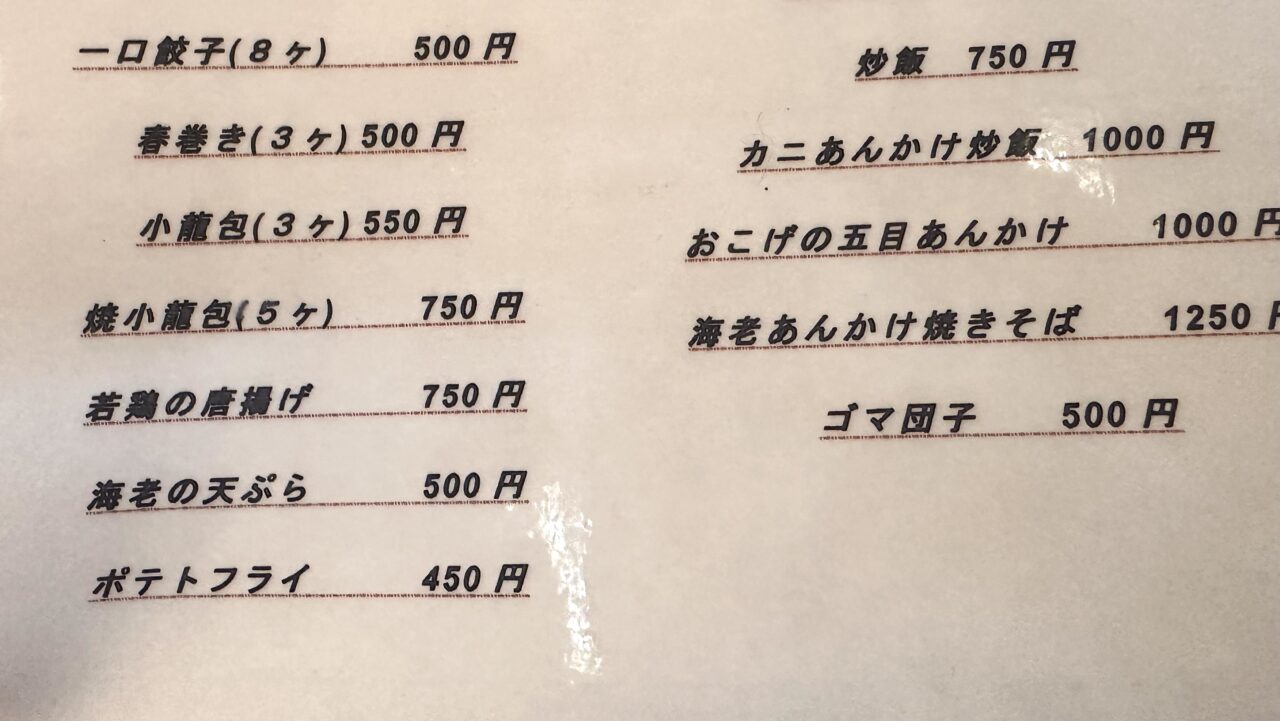 一口餃子(８ヶ) 500 円
春巻き(３ヶ) 500 円
小龍包(３ヶ) 550 円
焼小龍包(５ヶ) 750 円
若鶏の唐揚げ 750 円
海老の天ぷら 500 円
ポテトフライ 450 円
炒飯 750 円
カニあんかけ炒飯 1000 円
おこげの五目あんかけ 1000 円
海老あんかけ焼きそば 1250 円
ゴマ団子 500 円